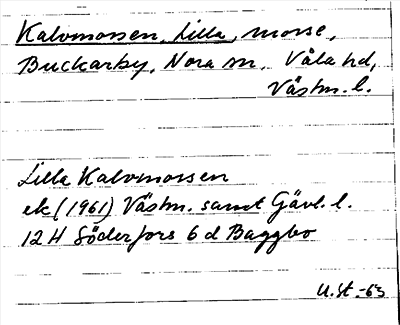 Kalvmossen, Lilla, mosse,
Buckarby, Nora sn, Våla hd,
Västm. l.
Lilla Kalvmossen
ek (1961) Västm. samt Gävl. l.
12 H Söderfors 6 d Baggbo
U.St. -63